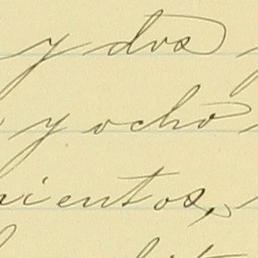 y dos
y ocho
mientos,